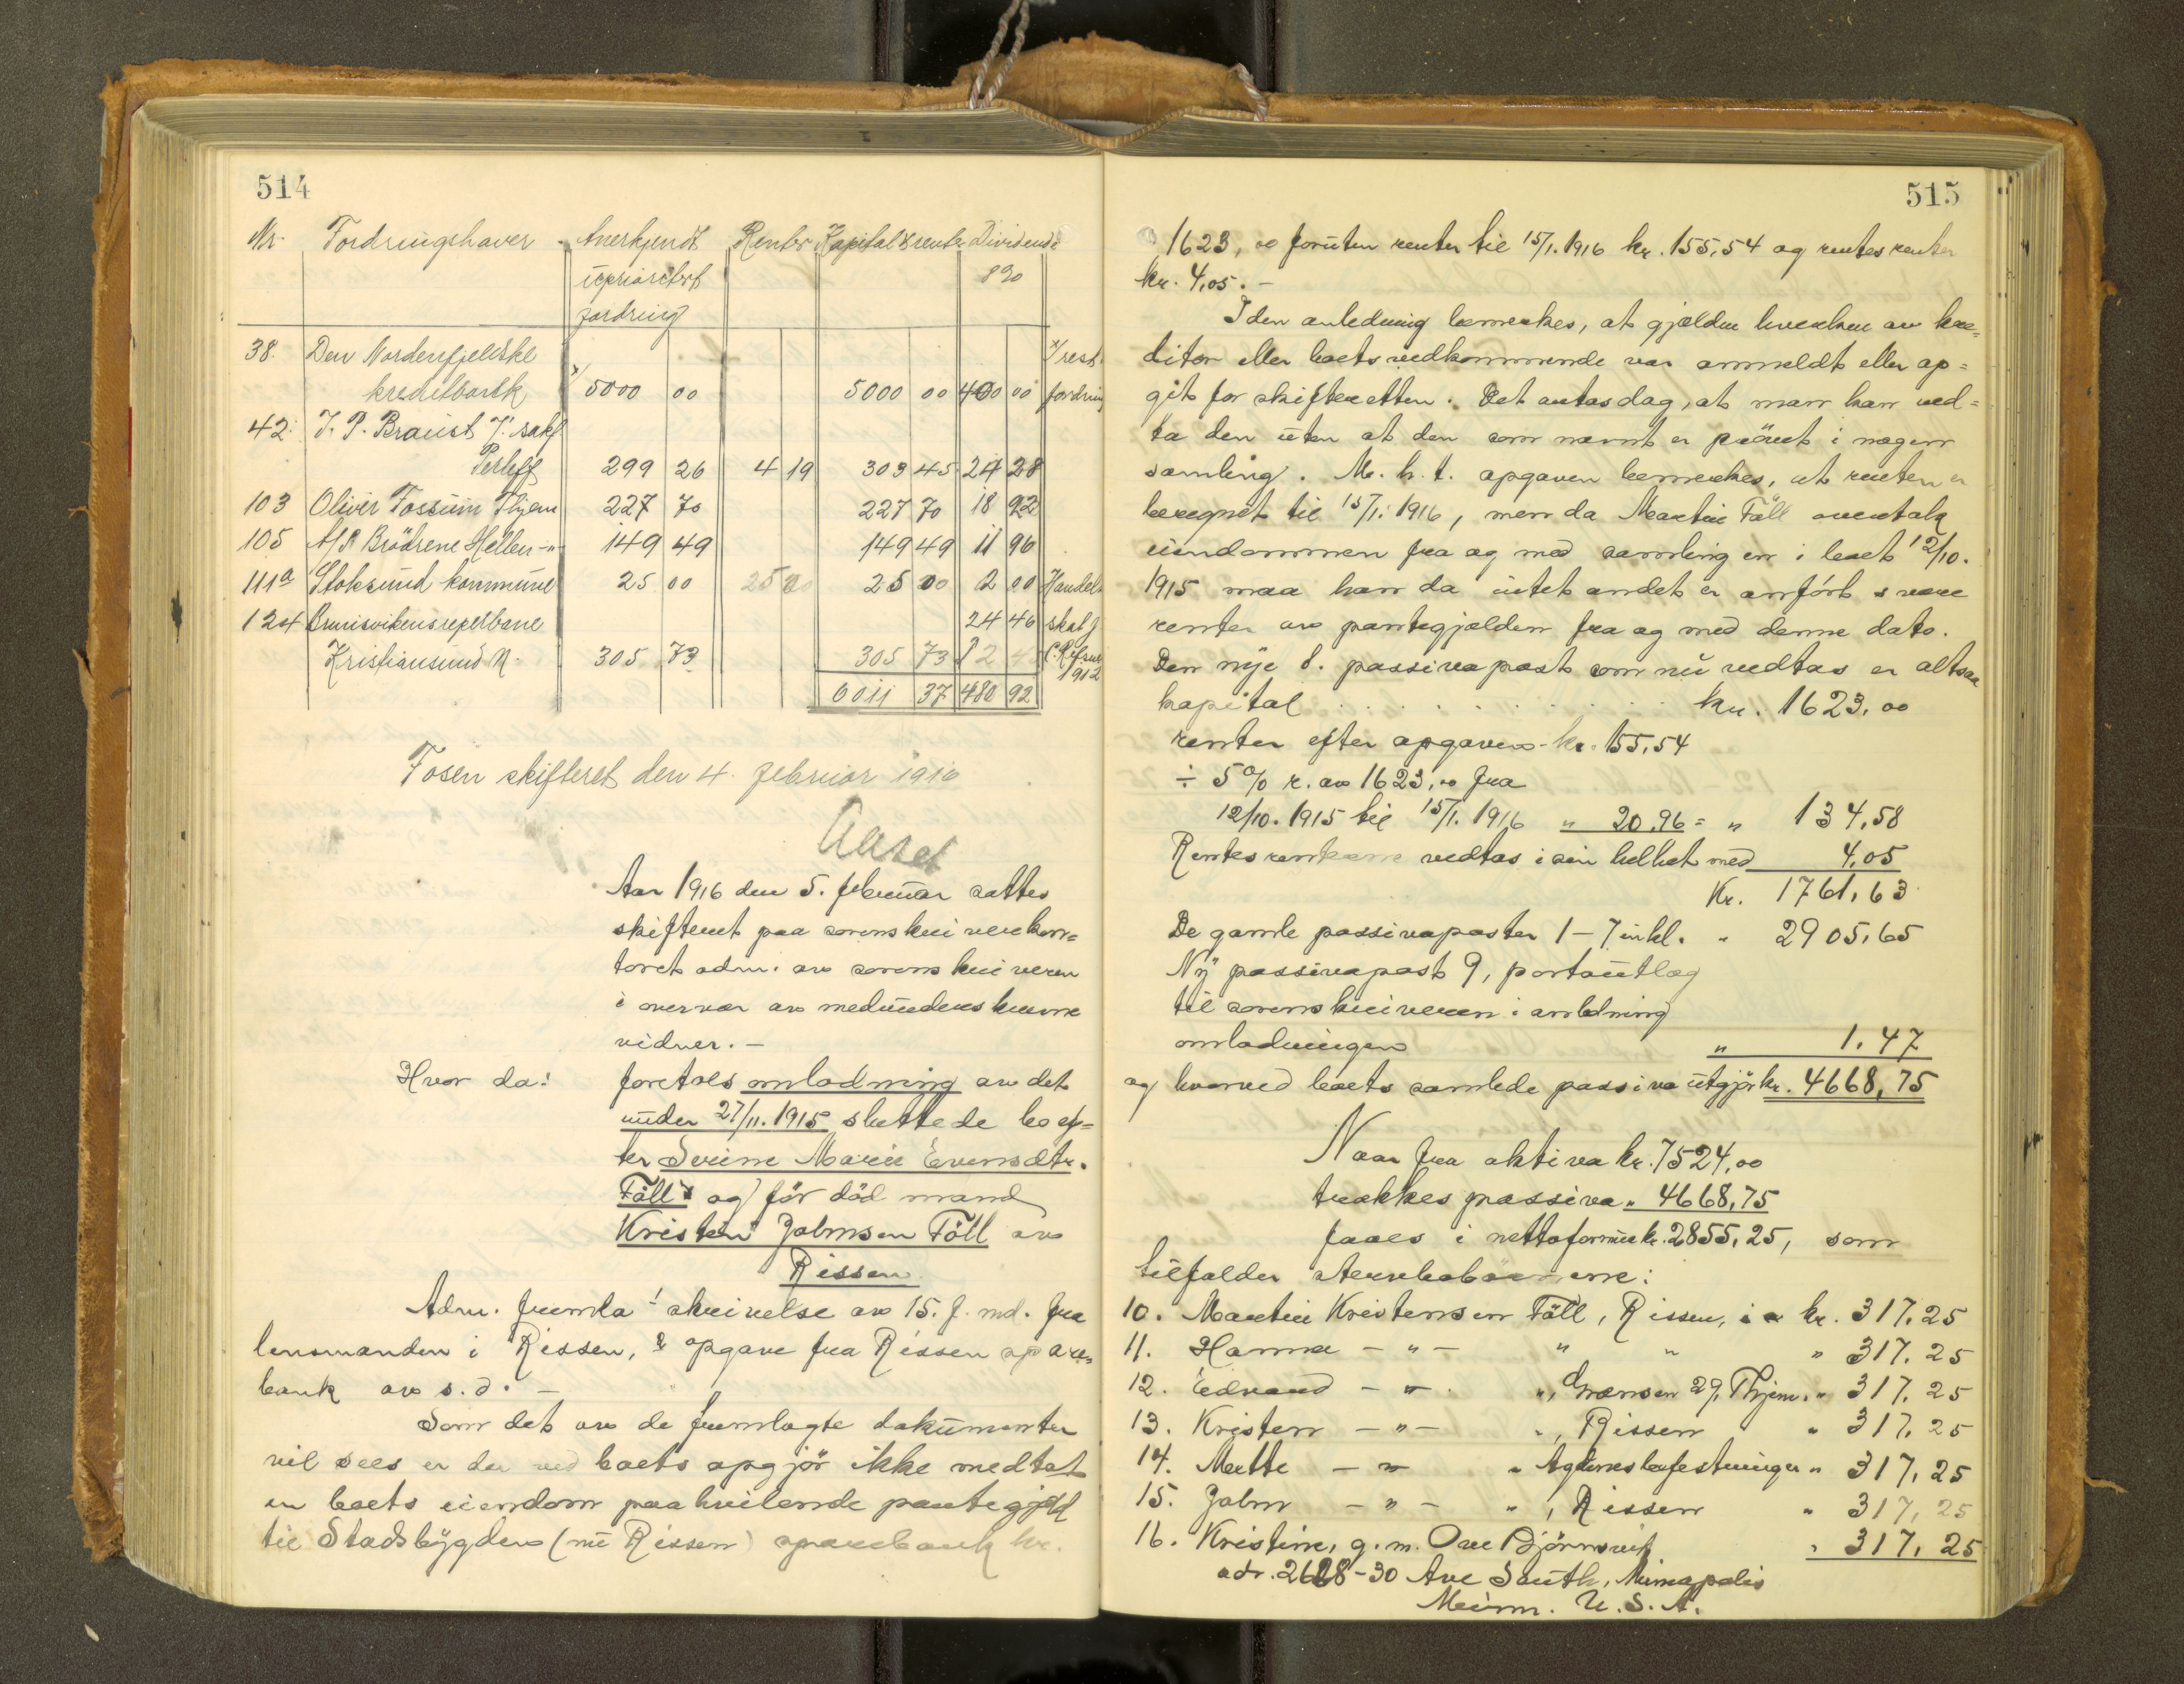 514
Nr. Fordringshaver. Anerkjendt Renter Kapital & renter Dividende
uprioritert 8%
fordring
38. Den Nordenfjeldske x/ rest
kreditbank x/ 5000 00 5000 00 400 00 fordring
42. J. P. Braust
299 26 4 19 303 45 24 28
103 Oliver Fossum Thjem 227 70 227 70 18 92
105 A/S Brödrene Hellen -"- 149 49 149 49 11 96
111a Stoksund kommune 25 00 25 00 2 00 Handels
124 Brunsvikens reperbane 24 46 skat f
Kristiansund N. 305 73 305 73 1912
6011 37 480 92
Fosen skifteret den 4. februar 1916
Aaset
Aar 1916 den 5. februar sattes
skifteret paa sorenskriverkon=
toret adm. av sorenskriveren
i overvær av medunderskrevne
vidner. —
Hvor da: foretoes omlodning av det
under 27/11. 1915 sluttede bo ef=
ter Serine Marie Evensdtr.
Föll og før död mand
Kristen Jalmsen Föll av
Rissen
Adm. fremla 1 skrivelse av 15. f. md. fra
lensmanden i Rissen, 2 opgave fra Rissen spare=
bank av s. d. —
Som det av de fremlagte dokumenter
vil sees er der ved boets opgjör ikke medtat
en boets eiendom paahvilende pantegjæld
til Stadsbygdens (nu Rissen) sparebank kr.
515
1623,00 foruten renter til 15/1. 1916 kr. 155,54 og rentesrenter
kr. 4,05. —
I den anledning bemerkes, at gjælden hverken av kre=
ditor eller boets vedkommende var anmeldt eller op=
git for skifteretten. Det antas dog, at man kan med=
ta den uten at den som nævnt er prövet i nogen
samling. M. h. t. opgaven bemerkes, at renten er
beregnet til 15/1. 1916, men da Martin Föll overtok
eiendommen fra og med samlingen i boet 12/10.
1915 maa han da intet andet er anfört svare
renter av pantegjælden fra og med denne dato.
Den nye 8. passivapost som nu vedtas er altsaa
kapital . . . . . . . . . . kr. 1623,00
renter efter opgaven kr. 155,54
÷ 5% r. av 1623,00 fra
12/10. 1915 til 15/1. 1916 " 20,96 = " 134,58
Rentesrenterne vedtas i sin helhet med 4,05
Kr. 1761,63
De gamle passivaposter 1 – 7 inkl. " 2905,65
Ny passivapost 9, portoutlæg
til sorenskriveren i anledning
omlodningen " 1,47
og hvorved boets samlede passiva utgjör kr. 4668,75
Naar fra aktiva kr. 7524,00
trækkes passiva " 4668,75
faaes i nettoformue kr. 2855,25, som
tilfalder
10. Martin Kristensen Föll, Rissen, kr. 317,25
11. Hanna – " – " " " 317,25
12. Edvard – " – ", Grænsen 29, Thjem. " 317,25
13. Kristen – " – ", Rissen " 317,25
14. Mette – " – " Agdenes befestninger " 317,25
15. Jalm – " – ", Rissen " 317,25
16. Kristine, g. m. Ove Björnsvik " 317,25
adr. 2628 – 30 Ave South, Minapolis
Minn. U. S. A.